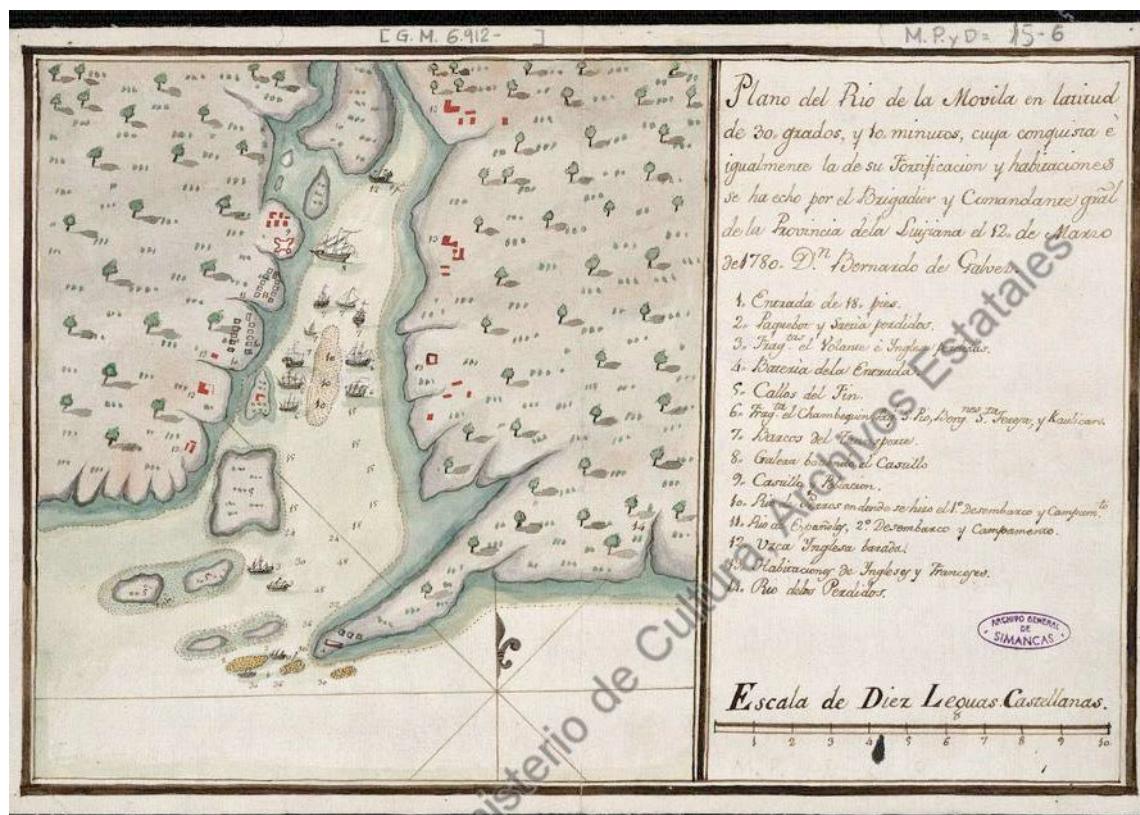 [G. M. 6.912- ]
M. P. y D = 15-6
Plano del Rio de la Movila en latitud
de 30. grados, y 10. minutos, cuya conquista è
igualmente la de su Fortificacion y habitaciones
se ha echo por el Brigadier y Comandante gral
de la Provincia dela Luisiana el 12. de Marzo
de 1780. Dn Bernardo de Galvez.
1. Entrada de 18. pies.
2. Paquebot y Saetia perdidos.
3. Fragtas el Volante è Ynglesa
4. Bateria dela Entrada.
5. Callos del Fin.
6. Fragta el Chambequin, S. Pio, Sta Teresa, y Kaulicant.
7. Barcos del Transporte.
8. Galera batiendo el Castillo
9. Castillo y Poblacion.
10. Rio Perros en donde se hizo el 1º Desembarco y Campamto
11. Rio de Españoles, 2º Desembarco y Campamento.
12. Urca Ynglesa barada.
13. Habitaciones de Yngleses y Franceses.
14. Rio delos Perdidos.
ARCHIVO GENERAL
DE
SIMANCAS
Escala de Diez Leguas Castellanas.
1 2 3 4 5 6 7 8 9 10
Ministerio de Cultura, Archivos Estatales